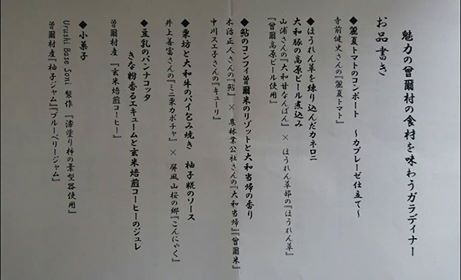 魅力の曽爾村の食材を味わうガラディナー
お品書き
◆麗夏トマトのコンポート ～カプレーゼ仕立て～
寺前健史さんの『麗夏トマト』
◆ほうれん草を練り込んだカネロニ
大和豚の高原ビール煮込み
山浦さんの『大和甘なんばん』 × ほうれん草部の『ほうれん草』
『曽爾高原ビール使用』
◆鮎のコンフィ曽爾米のリゾットと大和当帰の香り
木治正人さんの『鮎』 × 農林業公社さんの『大和当帰』『曽爾米』
中川スエ子さんの『キューリ』
◆栗坊と大和牛のパイ包み焼き 柚子糀のソース
井上善富さんの『ミニ栗カボチャ』 × 屏風山桜の郷『こんにゃく』
◆豆乳のパンナコッタ
きな粉香るエキュームと玄米焙煎コーヒーのジュレ
曽爾村産『玄米焙煎コーヒー』
◆小菓子
Urushi Base Soni 製作 『漆塗り杮の葉型器使用』
曽爾村産『柚子ジャム』『ブルーベリージャム』